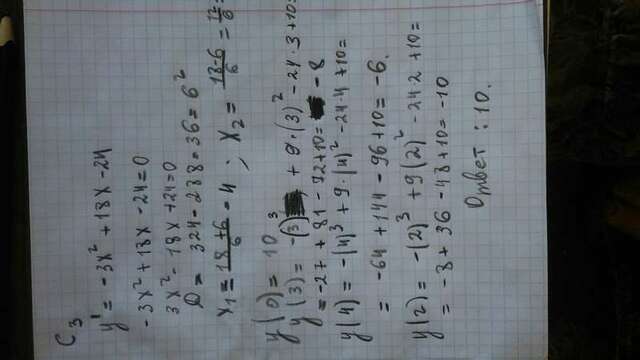 C3
y' = -3x² + 18x - 24
-3x² + 18x - 24 = 0
3x² - 18x + 24 = 0
D = 324 - 288 = 36 = 6²
x₁ = (18 + 6)/6 = 4 ; x₂ = (18 - 6)/6 = 12/6 =
y(0) = 10
y(3) = -(3)³ + 9·(3)² - 24·3 + 10 =
= -27 + 81 - 72 + 10 = - 8
y(4) = -(4)³ + 9·(4)² - 24·4 + 10 =
= -64 + 144 - 96 + 10 = -6.
y(2) = -(2)³ + 9(2)² - 24·2 + 10 =
= -8 + 36 - 48 + 10 = -10
Ответ : 10.